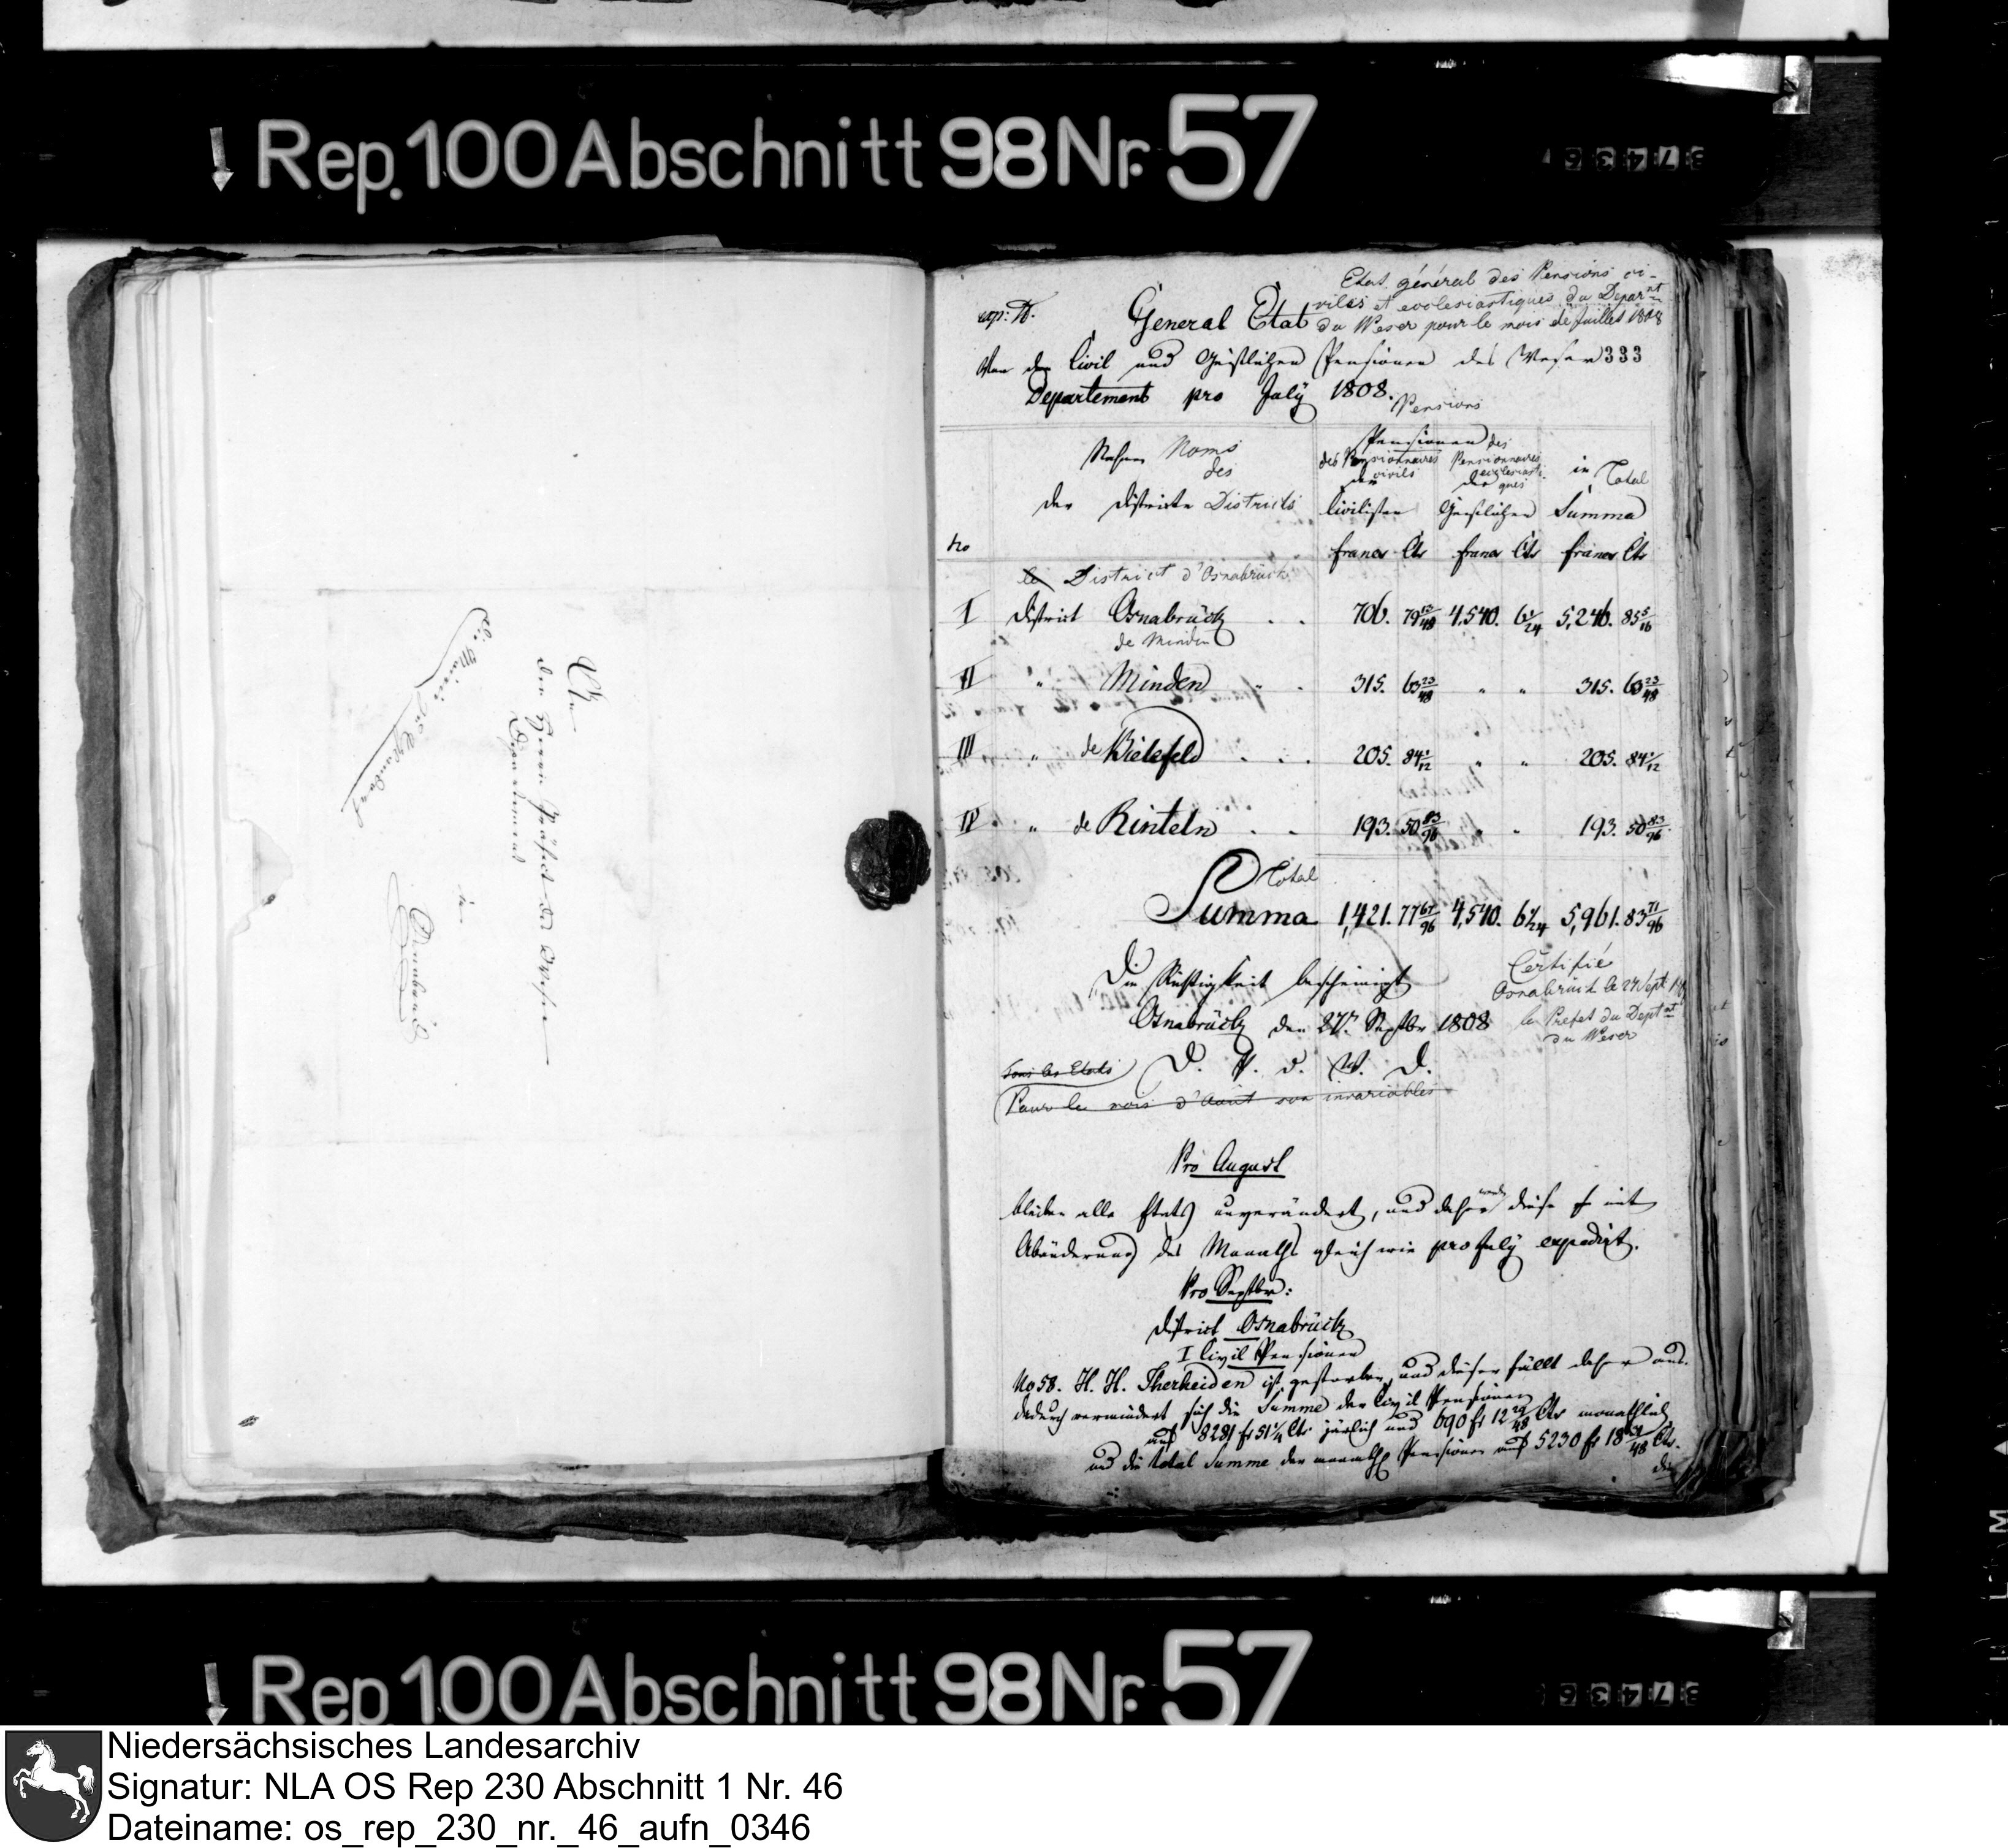 Rep. 100 Abschnitt 98 Nr. 57
An
den Herrn Präfect der Weser
Departements
in
Osnabrück
exp. H.
Etat général des Pensions ci-
viles et ecclesiastiques du Depar.nt
du Weser pour le mois de Juillet 1808
General Etat
333
Von den Civil und Geistlichen Pensionen des Weser
Departement pro July 1808.
Pensions
Nahmen Noms
des
der Districte Districts
Pensionen
des Pensionnaires civils
der
Civilisten
des Pensionnaires ecclesiastiques
der
Geistlichen
in Total
Summa
No
francs Cts francs Cts francs Cts
le District d'Osnabrück
I District Osnabrück . . 706. 79 13/48 4,540. 6 1/24 5,246. 85 5/16
de Minden
II " Minden " . 315. 63 23/48 " " 315. 63 23/48
III " de Bielefeld . . . 205. 84 1/12 " " 205. 84 1/12
IV " de Rinteln . . 193. 50 83/96 " " 193. 50 83/96
Total
Summa 1,421. 77 67/96 4,540. 6 1/24 5,961. 83 71/96
Die Richtigkeit bescheinigt
Osnabrück den 27n Septbr 1808
D. P. d. W. D.
Certifié
Osnabrück le 27 Sept
le Prefet du Dept nt
du Weser
Tous les Etats
Pour le mois d'Aout son invariables
Pro August
bleiben alle Etats unverändert, und daher werden diese mit
Abänderung des Monaths gleich wie pro July expedirt.
Pro Septbr:
District Osnabrück
I Civil Pensionen
No 58. H. H. Therheiden ist gestorben, und dieser fällt daher aus.
dadurch vermindert sich die Summe der Civil Pensionen
auf 8281 fr 51 1/4 Cts järlich und 690 fr 12 29/48 Cts monathlich
und die total Summe der monathl Pensionen auf 5230 fr 18 Cts.
die
Rep. 100 Abschnitt 98 Nr. 57
Niedersächsisches Landesarchiv
Signatur: NLA OS Rep 230 Abschnitt 1 Nr. 46
Dateiname: os_rep_230_nr._46_aufn_0346